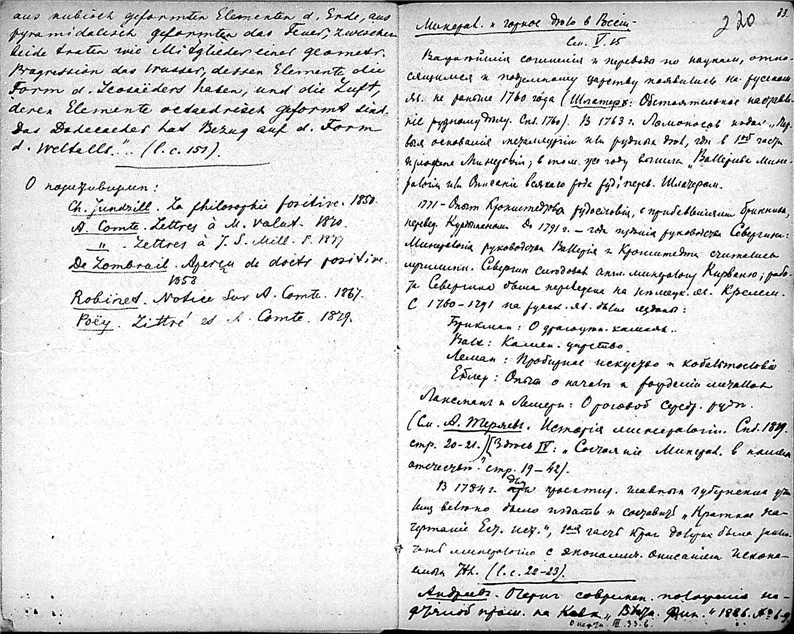 aus kubisch geformten Elementen d. Erde, aus
pyramidalisch geformten das Feuer, zwischen
beide traten wie Mitglieder einer geometr.
Progression das Wasser, dessen Elemente die
Form d. Icosaëders haben, und die Luft,
deren Elemente octaedrisch geformt sind.
Das Dodecaeder hat Bezug auf d. Form
d. Weltalls." (l.c. 151).
О позитивизме:
Ch. Jundzill. La philosophie positive. 1850.
A. Comte. Lettres à M. Valat. 1870.
" . Lettres à J. S. Mill. P. 1877
De Lombrail. Aperçu de doits positive.
1858
Robinet. Notice sur A. Comte. 1867.
Poëy. Littré et A. Comte. 1879.
220
Минерал. и горное дѣло в Россіи.
См. V. 15
Важнѣйшія сочиненія и переводы по наукам, отно-
сящимся к подземному царству появились на русском
яз. не раньше 1760 года (Шлаттер. Обстоятельное наставле-
ніе рудному дѣлу. Спб. 1760). В 1763 г. Ломоносов издал "Пер-
выя основанія металлургіи или рудных дѣл, где в 1ой части
; в том же году вышла "Валеріуса Мине-
ралогія или Описаніе всякаго рода руд", перев. Шлаттером.
1771 - Опыт Кронштедтова рудословія, с прибавленіями Бриннина,
перев. Курдимоном. До 1791 г. - года руководства Севергина:
Минералогія руководства Валерія и Кронштедта считались
лучшими. Севергин следовал англ. минералогу Кирвану;
Севергина была переведена на немецк. яз.
С 1760-1791 на русск. яз. были изданы:
Брикман: О драгоцен. камнях.
Валх: Камен. царство.
Леман: Пробирное искусство и кобальтословіе
Ейлер: Опыт о началѣ и рожденіи металлов
Лаксман и Лемери: О роговой серебр. рудѣ.
(См. А. Теряев. Исторія минералогіи. Спб. 1819.
стр. 20-21.) [Здѣсь IV: "Состояніе Минерал. в нашем
отечествѣ" стр. 19-42).
В 1784 г. для главных губерниях учи-
лищ велѣно было издать и сочинить "Краткое на-
чертаніе Ест. ист.",
минералогію с экономич. описаніем ископа-
емых (l.c. 22-23).
Андреев. Очерк современ. положенія не-
фтяной пром. на Кавк. "Вѣстн. Фин." 1886. № 6-9
О нефти. III. 33. б.